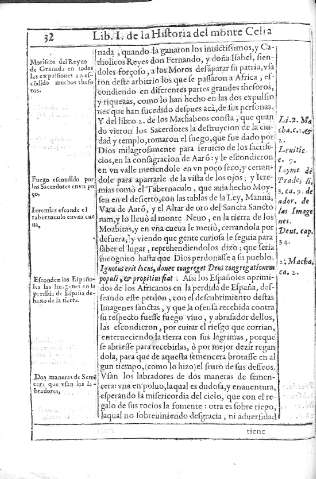 32
Lib. I. de la Historia del monte Celia
nada, quando la ganaron los inuictissimos, y Ca-
tholicos Reyes don Fernando, y doña Isabel, sien-
doles forçoso, a los Moros desãparar su patria, vsa
ron deste arbitrio los que se passaron a Africa, es-
condiendo en diferentes partes grandes thesoros,
y riquezas, como lo han hecho en las dos expulsio
nes que han sucedido despues acà, de sus personas.
Y del libro 2. de los Machabeos consta, que quan
do vieron los Sacerdotes la destruycion de la ciu
dad y templo, tomaron el fuego, que fue dado por
Dios milagrosamente para seruicio de los sacrifi-
cios, en la consagracion de Aarõ: y le escondieron
en vn valle metiendole en vn poço seco, y cerran-
dole para apartarle de la vista de los ojos; y Iere-
mias tomò el Tabernaculo, que auia hecho Moy-
sen en el desierto, con las tablas de la Ley, Mannà,
Vara de Aarõ, y el Altar de oro del Sancta Sancto
rum, y lo lleuò al monte Neuo, en la tierra de los
Moabitas, y en vna cueua le metiò, cerrandola por
defuera, y viendo que gente curiosa le seguia para
saber el lugar, reprehendiendolos dixo; que seria
incognito hasta que Dios perdonasse a su pueblo.
Ignotus erit locus, donec congreget Deus congregationem
populi, & propitius fiat. Assi los Españoles oprimi-
dos de los Africanos en la perdida de España, des-
seando este perdon, con el descubrimiento destas
Imagenes sanctas, y que la ofensa recebida contra
su respecto fuesse fuego viuo, y abrasador dellos,
las escondieron, por euitar el riesgo que corrian,
enterneciendo la tierra con sus lagrimas, porque
se abriesse para recebirlas, ò por mejor dezir regan
dola, para que de aquella semencera brotasse en al
gun tiempo, (como lo hizo) el fruto de sus desseos.
Vsan los labradores de dos maneras de semen-
teras: vna en poluo, laqual es dudosa, y en auentura,
esperando la misericordia del cielo, que con el re-
galo de sus rocios la fomente: otra es sobre riego,
laqual no sobreuiniendo desgracia, ni aduersidad
tiene
Moriscos del Reyno
de Granada en todas
las expulsiones an es-
cõdido muchos theso
ros.
Fuego escondido por
los Sacerdotes en vn po
ço.
Ieremias esconde el
tabernaculo en vna cue
ua.
Esconden los Españo-
les las Imagenes en la
perdida de España de-
baxo de la tierra.
Dos maneras de Seme
teras que vsan los la-
bradores.
Li. 2. Ma
cha. c. 1. &
2.
Leuitic
c. 9.
Deut. cap.
34.
2. Macha.
ca. 2.